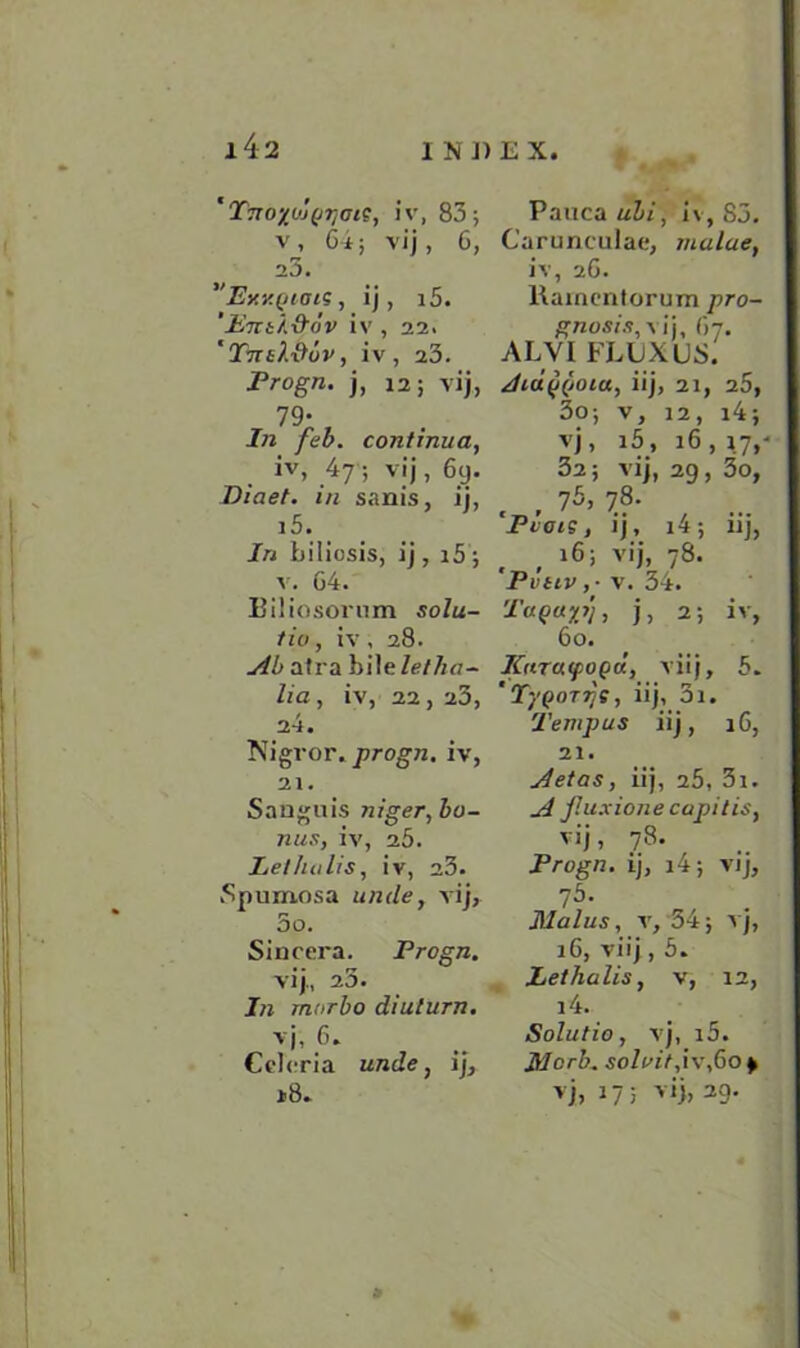 142 INDEX.
Ὑποχώρησις, iv, 83;
v, 64; vij, 6,
23.
Ἔκκρισις, ij, 15.
Ἐπελθόν iv, 22.
Ὑπελθόν, iv, 23.
Progn. j, 12; vij,
79.
In feb. continua,
iv, 47; vij, 69.
Diaet. in sanis, ij,
15.
In biliosis, ij, 15;
v. 64.
Biliosorum solu-
tio, iv, 28.
Ab atra bile letha-
lia, iv, 22, 23,
24.
Nigror. progn. iv,
21.
Sanguis niger, bo-
nus, iv, 25.
Lethalis, iv, 23.
Spumosa unde, vij,
30.
Sincera. Progn.
vij, 23.
In morbo diuturn.
vj, 6.
Celeria unde, ij,
18.
Pauca ubi, iv, 83.
Carunculae, malae,
iv, 26.
Ramentorum pro-
gnosis, vij, 67.
ALVI FLUXUS.
Διάῤῥοια, iij, 21, 25,
30; v, 12, 14;
vj, 15, 16, 17,
32; vij, 29, 30,
75, 78.
Ῥύσις, ij, 14; iij,
16; vij, 78.
Ῥύειν, v. 34.
Ταραχὴ, j, 2; iv,
60.
Καταφορά, viij, 5.
Ὑγροτὴς, iij, 31.
Tempus iij, 16,
21.
Aetas, iij, 25, 31.
A fluxione capitis,
vij, 78.
Progn. ij, 14; vij,
75.
Malus, v, 34; vj,
16, viij, 5.
Lethalis, v, 12,
14.
Solutio, vj, 15.
Morb. solvit, iv, 60;
vj, 17; vij, 29.